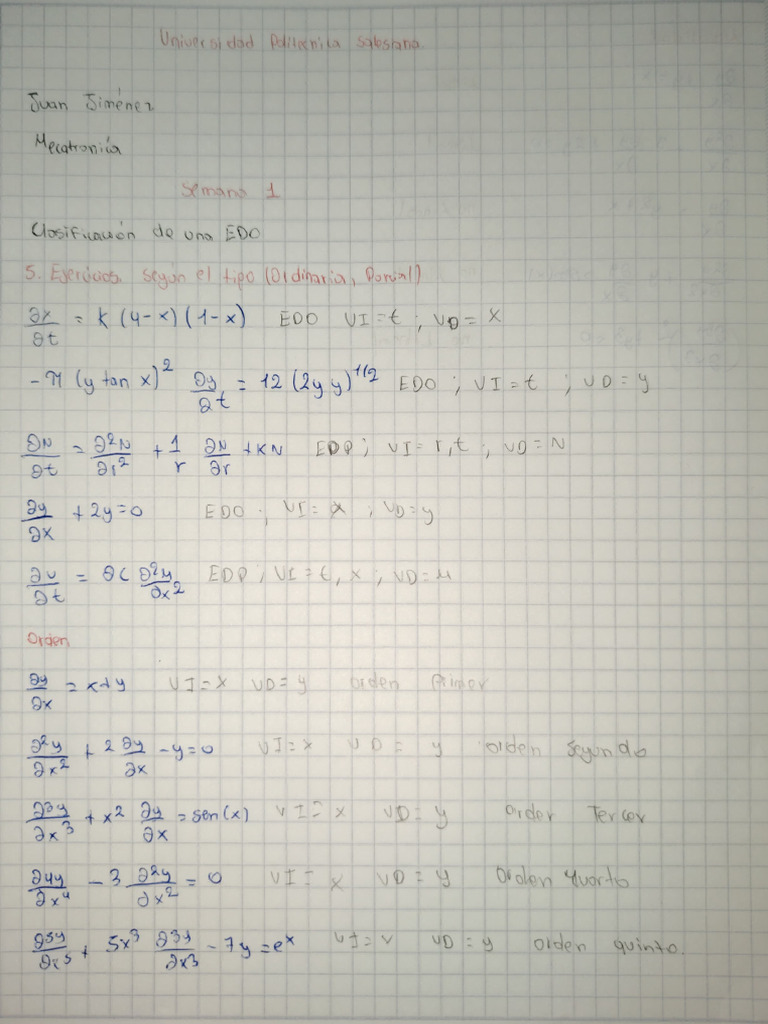 Universidad Politecnica Salesiana
Juan Jiménez
Mecatronica
Semana 1
Clasificación de una EDO
5. Ejercicios según el tipo (Ordinaria, Parcial)
∂x/∂t = K (4-x) (1-x) EDO VI=t ; VD=x
-π (y tan x)^2 ∂y/∂t = 12 (2y y)^1/2 EDO ; VI=t ; VD=y
∂N/∂t = ∂^2N/∂r^2 + 1/r ∂N/∂r + KN EDP ; VI=r,t ; VD=N
∂y/∂x + 2y=0 EDO ; VI=x ; VD=y
∂u/∂t = ∂^2u/∂x^2 EDP ; VI=t, x ; VD=u
Orden
∂y/∂x = x+y VI=x VD=y orden Primer
∂^2y/∂x^2 + 2 ∂y/∂x -y=0 VI=x VD = y orden segundo
∂^3y/∂x^3 + x^2 ∂y/∂x = sen(x) VI=x VD=y order Tercer
∂^4y/∂x^4 - 3 ∂^2y/∂x^2 = 0 VI= x VD = y Orden quarto
∂^5y/∂x^5 + 5x^3 ∂^3y/∂x^3 - 7y = e^x VD = y orden quinto.